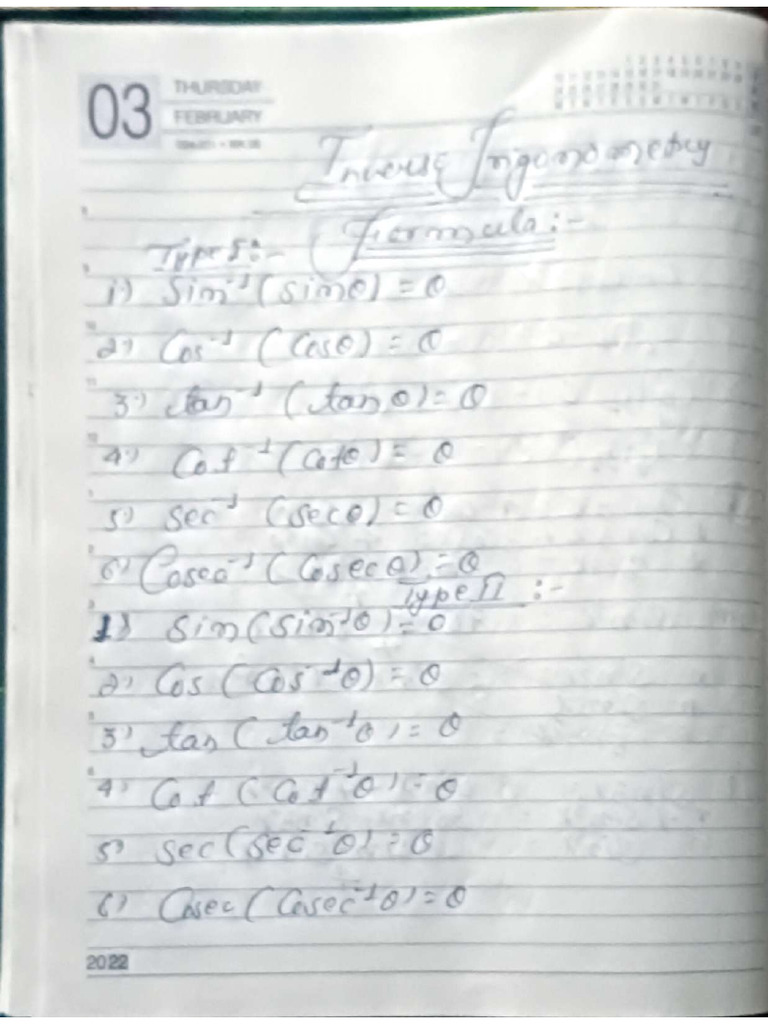 03
THURSDAY
FEBRUARY
Inverse Trigonometry
Formula:-
Type I:-
1) Sin⁻¹(sinθ) = θ
2) Cos⁻¹ (Cosθ) = θ
3) tan⁻¹ (tanθ) = θ
4) Cot⁻¹ (Cotθ) = θ
5) sec⁻¹ (secθ) = θ
6) Cosec⁻¹ (Cosecθ) = θ
Type II :-
1) Sin(Sin⁻¹θ) = θ
2) Cos (Cos⁻¹θ) = θ
3) tan (tan⁻¹θ) = θ
4) Cot (Cot⁻¹θ) = θ
5) sec(sec⁻¹θ) = θ
6) Cosec (Cosec⁻¹θ) = θ
2022